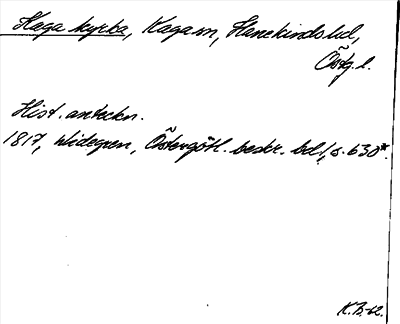 Kaga kyrka, Kaga sn, Hanekinds hd,
Östg.l.
Hist. anteckn.
1817, Widegren, Östergötl. beskr. bd 1, s. 630*.
K.B-62.